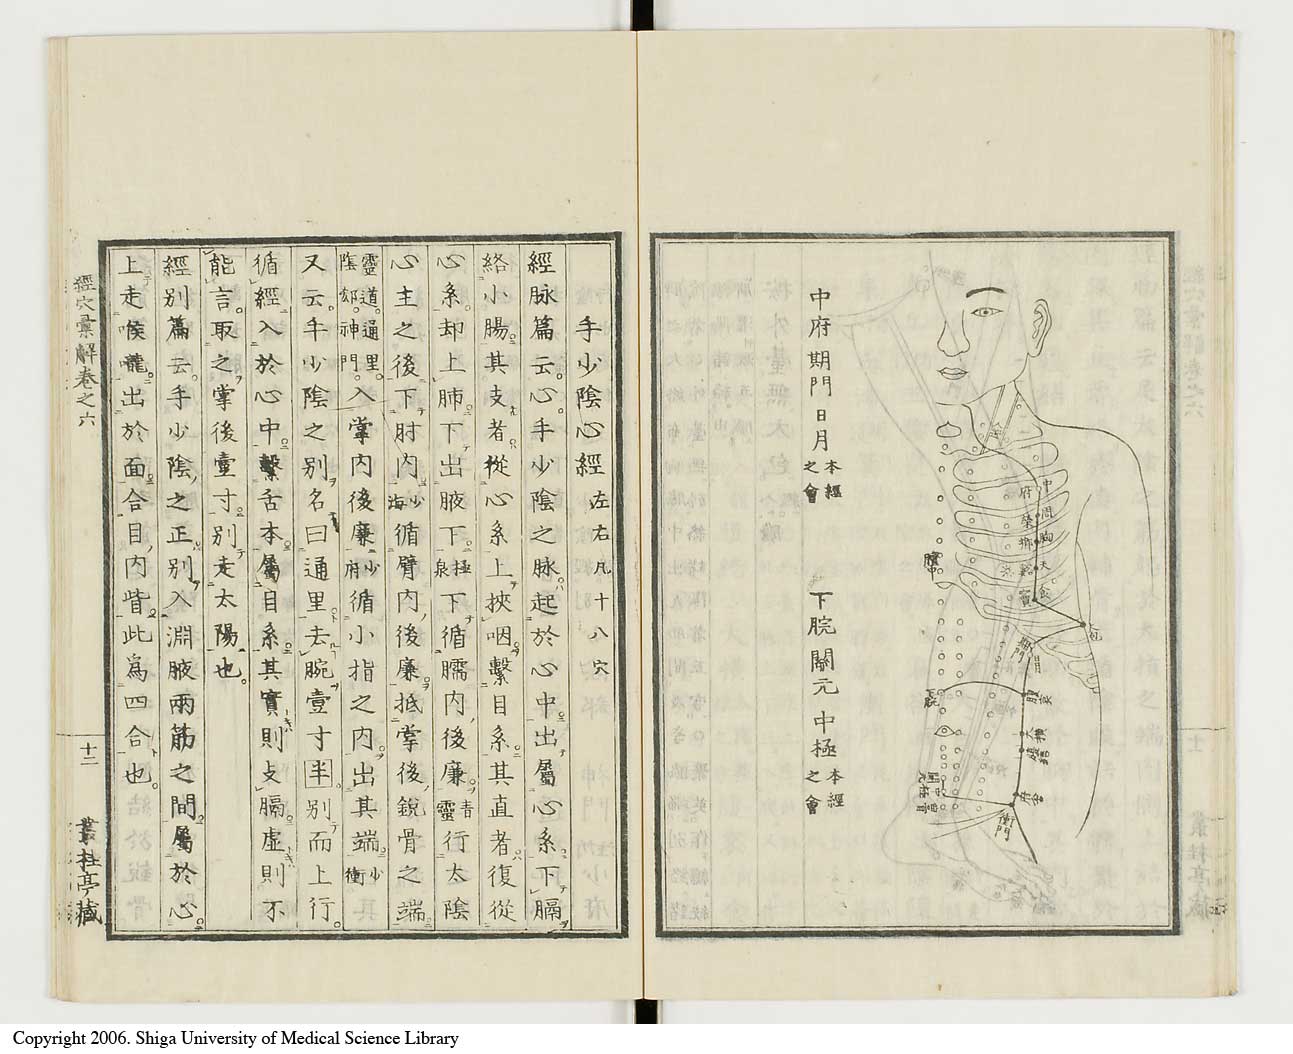 中府期門日月本經之會
下脘關元中極本經之會
中府
周榮
胸鄉
天谿
食竇
大包
期門
日月
腹哀
大橫
腹結
府舍
衝門
手少陰心經左右凡十八穴
經脉篇云心手少陰之脉起於心中出屬心系下膈
絡小腸其支者從心系上挾咽繫目系其直者復從
心系却上肺下出腋下極泉下循臑内後廉青靈行太陰
心主之後下肘内少海循臂内後廉抵掌後銳骨之端
靈道通里陰郄神門入掌内後廉少府循小指之内出其端少衝
又云手少陰之別名曰通里去腕壹寸半別而上行
循經入於心中繫舌本屬目系其實則支膈虛則不
能言取之掌後壹寸別走太陽也
經別篇云手少陰之正別入淵腋兩筋之間屬於心
上走喉嚨出於面合目内眥此爲四合也
經穴彙解卷之六
十二
叢桂亭藏
Copyright 2006. Shiga University of Medical Science Library